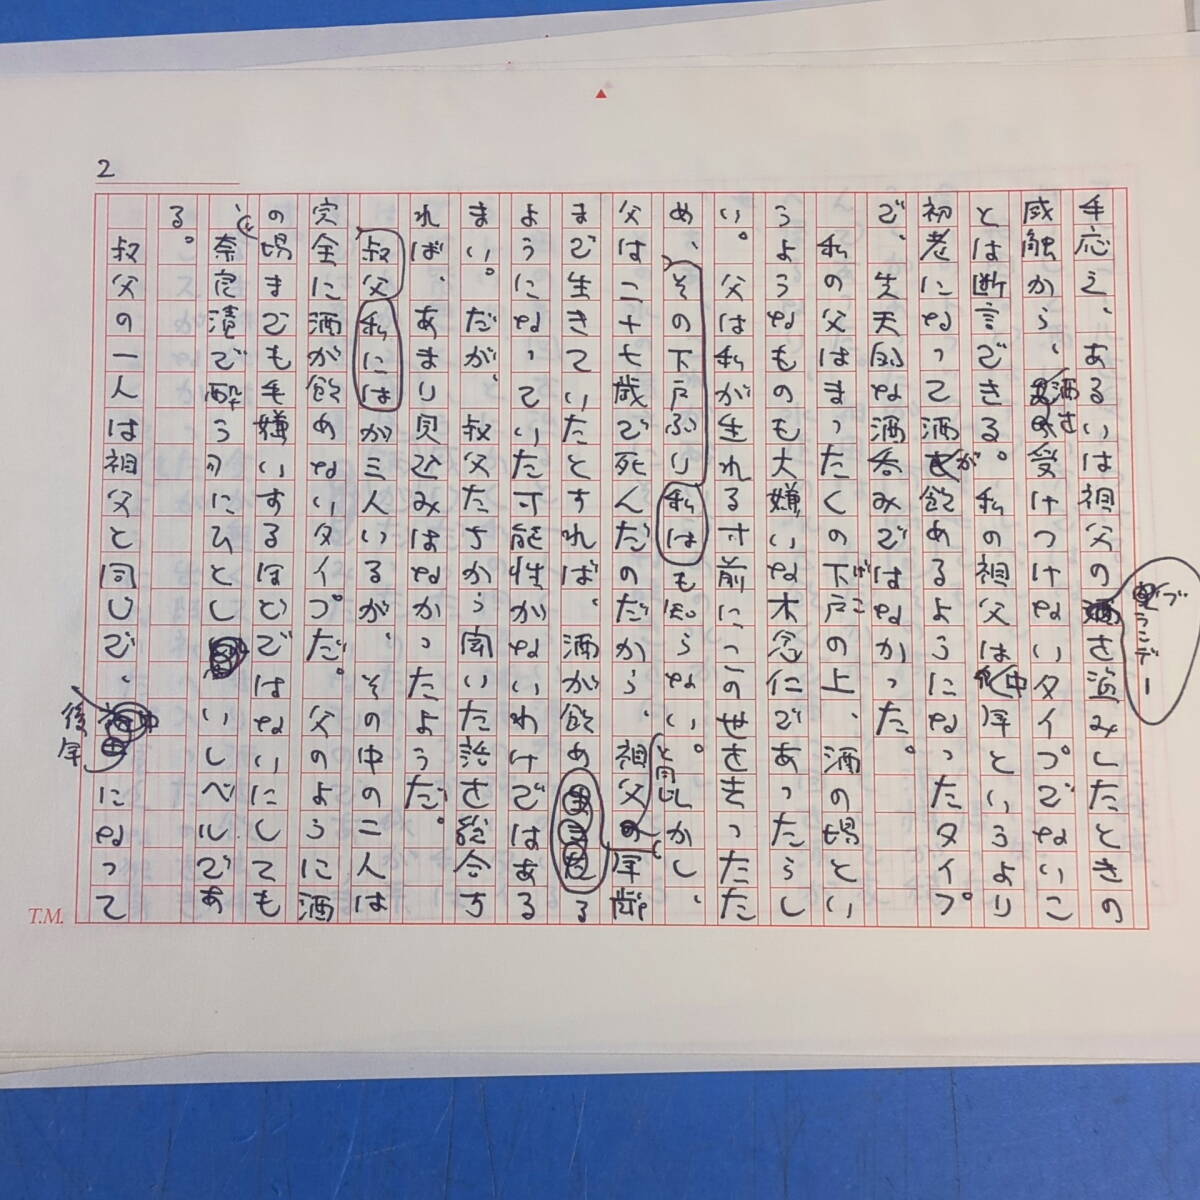 2
ブランデー
手応え、あるいは祖父の酒を盗みしたときの
感触から、酒を受けつけないタイプでないこ
とは断言できる。私の祖父は中年というより
初老になって酒が飲めるようになったタイプ
で、先天的な酒呑みではなかった。
私の父はまったくの下戸の上、酒の場とい
げこ
うようなものも大嫌いな木念仁であったらし
い。父は私が生れる寸前にこの世を去ったた
め、その下戸ぶり私はも知らない。しかし、
と同じ
父は二十七歳で死んだのだから、祖父の年齢
まで生きていたとすれば、酒が飲める
ようになっていた可能性がないわけではある
まい。だが、叔父たちから聞いた話を総合す
れば、あまり見込みはなかったようだ。
叔父私にはが三人いるが、その中の二人は
完全に酒が飲めないタイプだ。父のように酒
の場までも毛嫌いするほどではないにしても
、奈良漬で酔う口にひとしいレベルであ
る。
叔父の一人は祖父と同じで、
後年
になって
T.M.